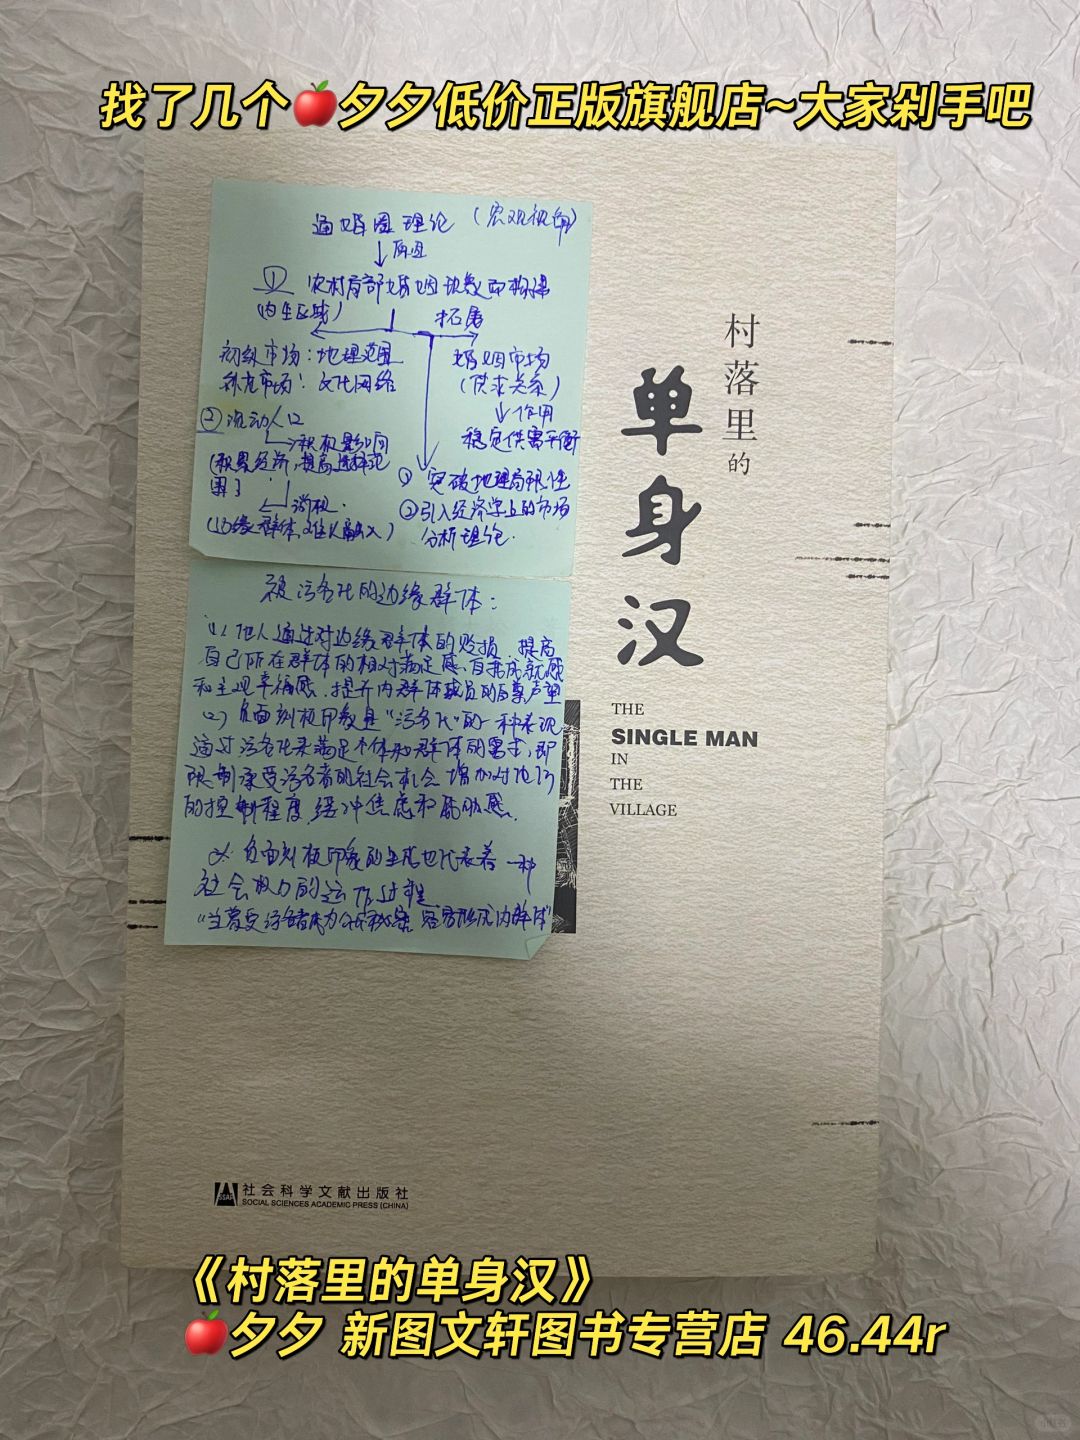 找了几个🍎夕夕低价正版旗舰店~大家剁手吧
通婚圈理论（宏观视角）
↓
① 农村局部婚姻
(内生区域)
拓展
初级市场：地理范围
补充市场：文化网络
婚姻市场
(供求关系)
↓作用
稳定供需平衡
② 流动人口
积极影响
(积累经济，提高选择范
围)
消极
(边缘群体，难以融入)
① 突破地理局限性
②引入经济学上的市场
分析理论.
被污名化的边缘群体：
(1) 他人通过对边缘群体的贬损，提高
自己所在群体的相对满足感、自我成就感
和主观幸福感，提升内群体成员的自尊声望
(2) 负面刻板印象是“污名化”的一种表现
通过污名化来满足个体和群体的需求，即
限制承受污名者的社会机会 增加对他们
的控制程度，缓冲焦虑和威胁感.
负面刻板印象的生成也代表着一种
社会权力的运作过程
村落里的
单身汉
THE
SINGLE MAN
IN
THE
VILLAGE
SSAP
社会科学文献出版社
SOCIAL SCIENCES ACADEMIC PRESS (CHINA)
《村落里的单身汉》
🍎夕夕 新图文轩图书专营店 46.44r
小红书